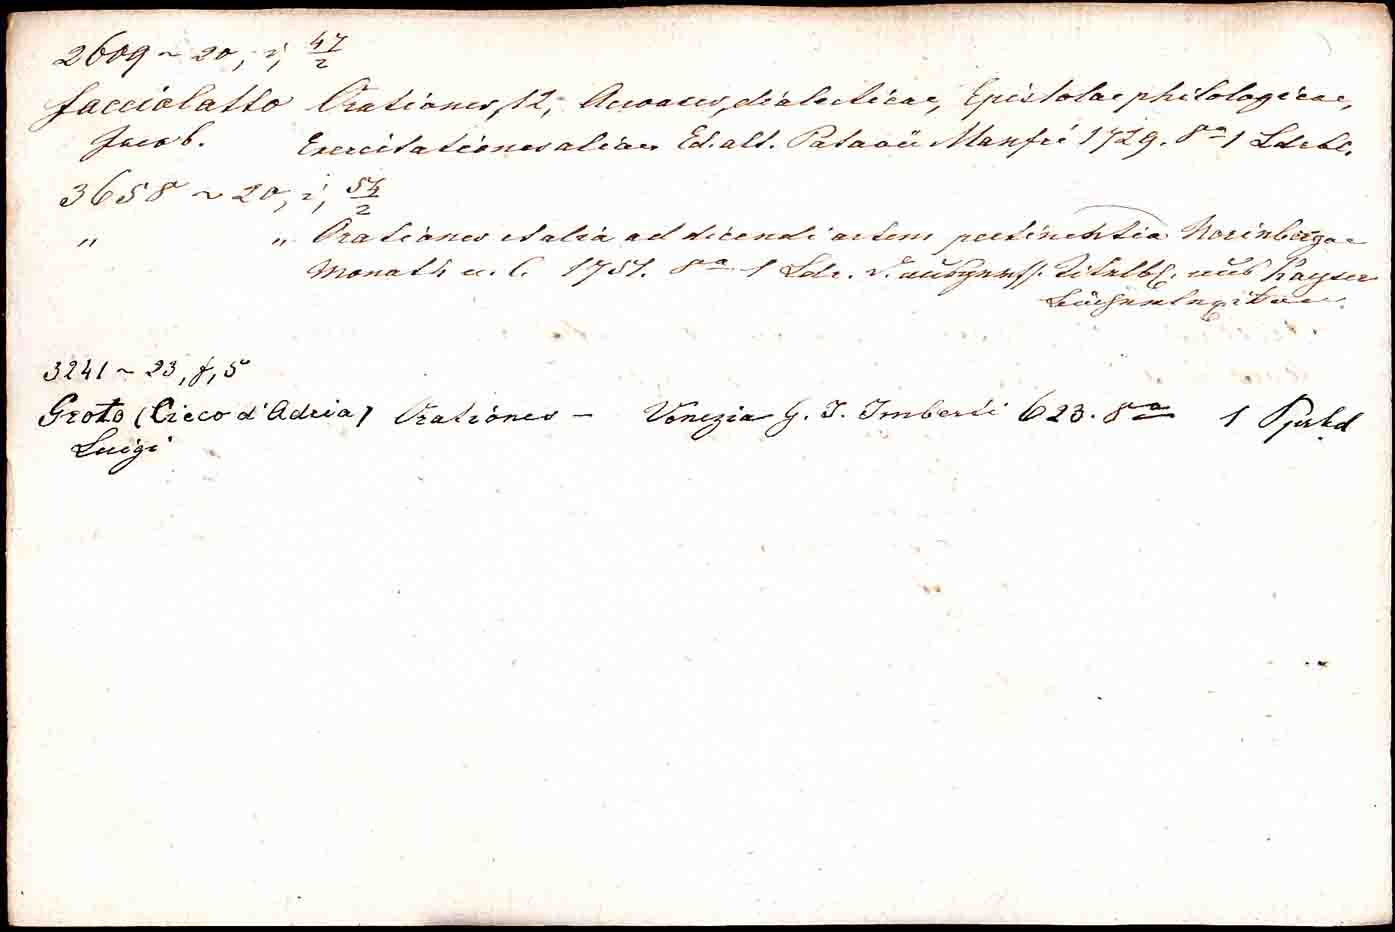 2609 ~ 20, i, 47/2
Facciolatto Orationes, 12, Acroases, dialecticae, Epistolae philologicae,
Jacob. Exercitationes aliae Ed. alt. Patavii Manfré 1729. 8° 1 Ldrbd.
3658 ~ 20, i, 54/2
" " Orationes et alia ad dicendi artem pertinentia Norinbergae
Monath u. C. 1751. 8° 1 Ldr. Titelbl. aus Kayser
Bücherlexikon.
3241 ~ 23, f, 5
Groto (Cieco d'Adria) Orationes – Venezia G. I. Imberti 623. 8° 1 Pgtbd
Luigi